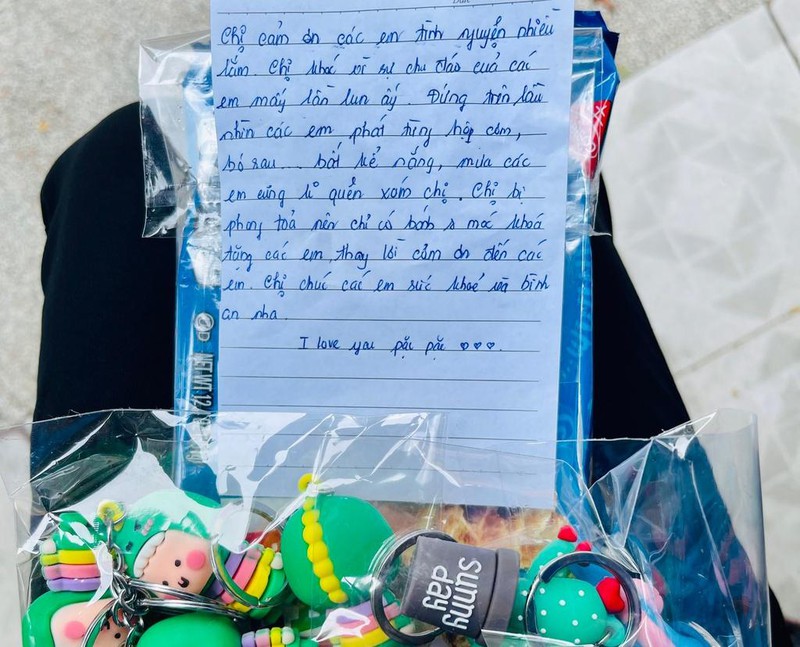 Chị cảm ơn các em tình nguyện nhiều
lắm. Chị khóc vì sự chu đáo của các
em mấy lần lun ấy. Đứng trên lầu
nhìn các em phát từng hộp cơm,
bó rau... bất kể nắng, mưa các
em cũng k quên xóm chị. Chị bị
phong toả nên chỉ có bánh & móc khoá
tặng các em, thay lời cảm ơn đến các
em. Chị chúc các em sức khoẻ và bình
an nha.
I love you pặc pặc ♡♡♡.
NET WT. 12
sunny
day